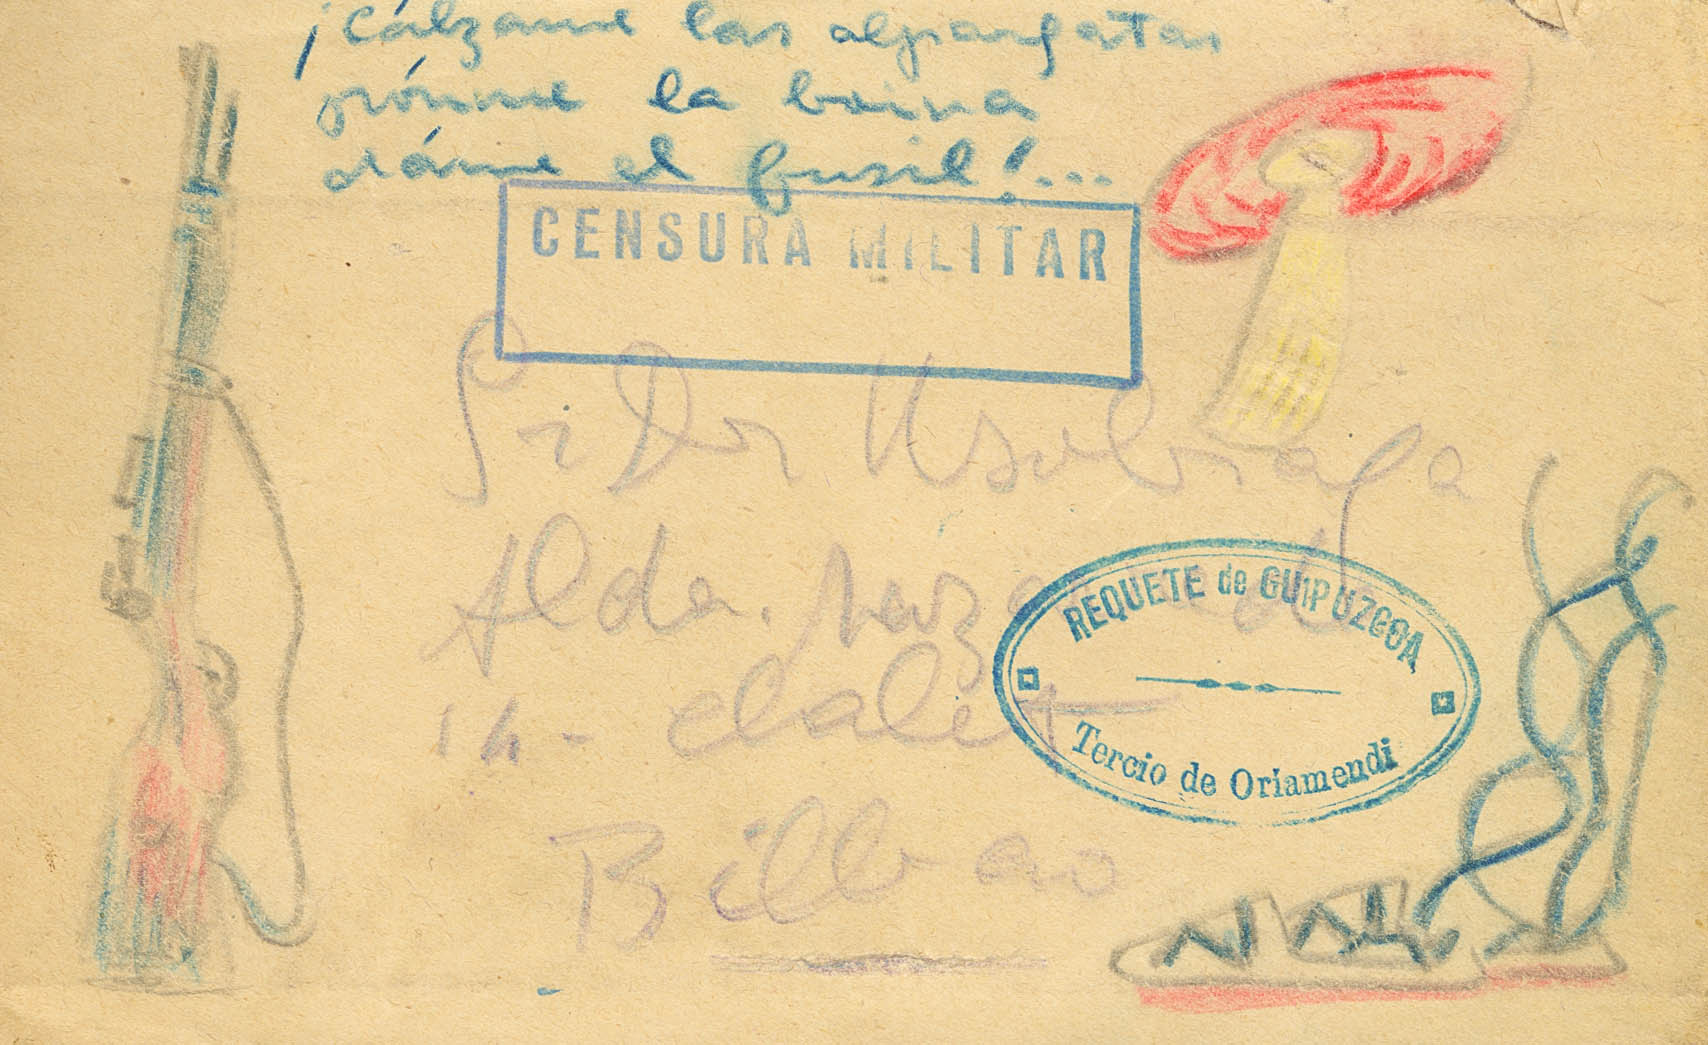 ¡Cálzame las alpargatas
pónme la boina
dáme el fusil!...
CENSURA MILITAR
Sr Dr Usobiaga
Alda. Mazarredo
14 - chalet
Bilbao
REQUETE de GUIPUZCOA
Tercio de Oriamendi